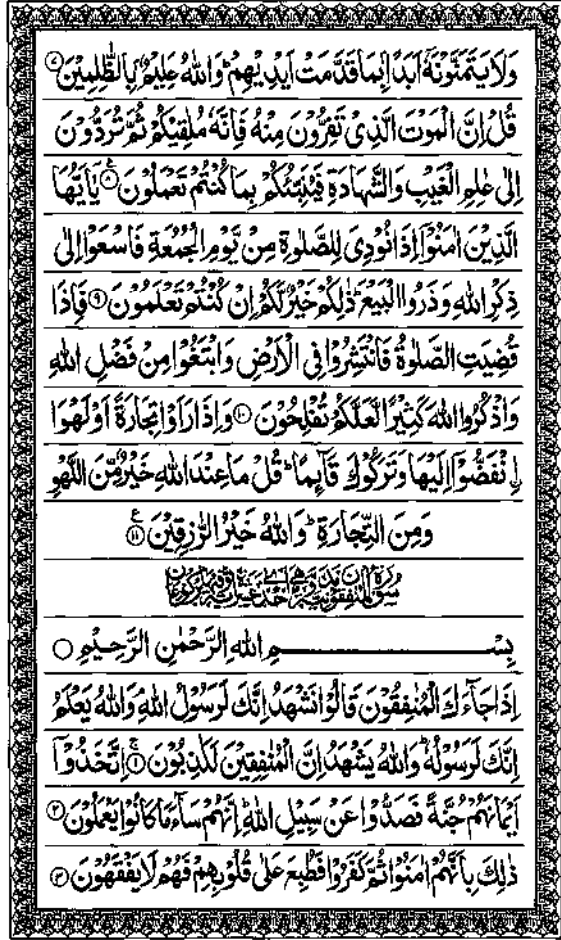 وَلَا يَتَمَنَّوْنَهٗۤ اَبَدًۢا بِمَا قَدَّمَتْ اَيْدِيْهِمْ ؕ وَاللّٰهُ عَلِيْمٌۢ بِالظّٰلِمِيْنَ ۷
قُلْ اِنَّ الْمَوْتَ الَّذِيْ تَفِرُّوْنَ مِنْهُ فَاِنَّهٗ مُلٰقِيْكُمْ ثُمَّ تُرَدُّوْنَ
اِلٰى عٰلِمِ الْغَيْبِ وَالشَّهَادَةِ فَيُنَبِّئُكُمْ بِمَا كُنْتُمْ تَعْمَلُوْنَ ۸ يٰۤاَيُّهَا
الَّذِيْنَ اٰمَنُوْۤا اِذَا نُوْدِيَ لِلصَّلٰوةِ مِنْ يَّوْمِ الْجُمُعَةِ فَاسْعَوْا اِلٰى
ذِكْرِ اللّٰهِ وَذَرُوا الْبَيْعَ ؕ ذٰلِكُمْ خَيْرٌ لَّكُمْ اِنْ كُنْتُمْ تَعْلَمُوْنَ ۹ فَاِذَا
قُضِيَتِ الصَّلٰوةُ فَانْتَشِرُوْا فِي الْاَرْضِ وَابْتَغُوْا مِنْ فَضْلِ اللّٰهِ
وَاذْكُرُوا اللّٰهَ كَثِيْرًا لَّعَلَّكُمْ تُفْلِحُوْنَ ۱۰ وَاِذَا رَاَوْا تِجَارَةً اَوْ لَهْوَا
ۨانْفَضُّوْۤا اِلَيْهَا وَتَرَكُوْكَ قَآئِمًا ؕ قُلْ مَا عِنْدَ اللّٰهِ خَيْرٌ مِّنَ اللَّهْوِ
وَمِنَ التِّجَارَةِ ؕ وَاللّٰهُ خَيْرُ الرّٰزِقِيْنَ ۱۱
بِسْمِ اللّٰهِ الرَّحْمٰنِ الرَّحِيْمِ
اِذَا جَآءَكَ الْمُنٰفِقُوْنَ قَالُوْا نَشْهَدُ اِنَّكَ لَرَسُوْلُ اللّٰهِ ۘ وَاللّٰهُ يَعْلَمُ
اِنَّكَ لَرَسُوْلُهٗ ؕ وَاللّٰهُ يَشْهَدُ اِنَّ الْمُنٰفِقِيْنَ لَكٰذِبُوْنَ ۱ اِتَّخَذُوْۤا
اَيْمَانَهُمْ جُنَّةً فَصَدُّوْا عَنْ سَبِيْلِ اللّٰهِ ؕ اِنَّهُمْ سَآءَ مَا كَانُوْا يَعْمَلُوْنَ ۲
ذٰلِكَ بِاَنَّهُمْ اٰمَنُوْا ثُمَّ كَفَرُوْا فَطُبِعَ عَلٰى قُلُوْبِهِمْ فَهُمْ لَا يَفْقَهُوْنَ ۳